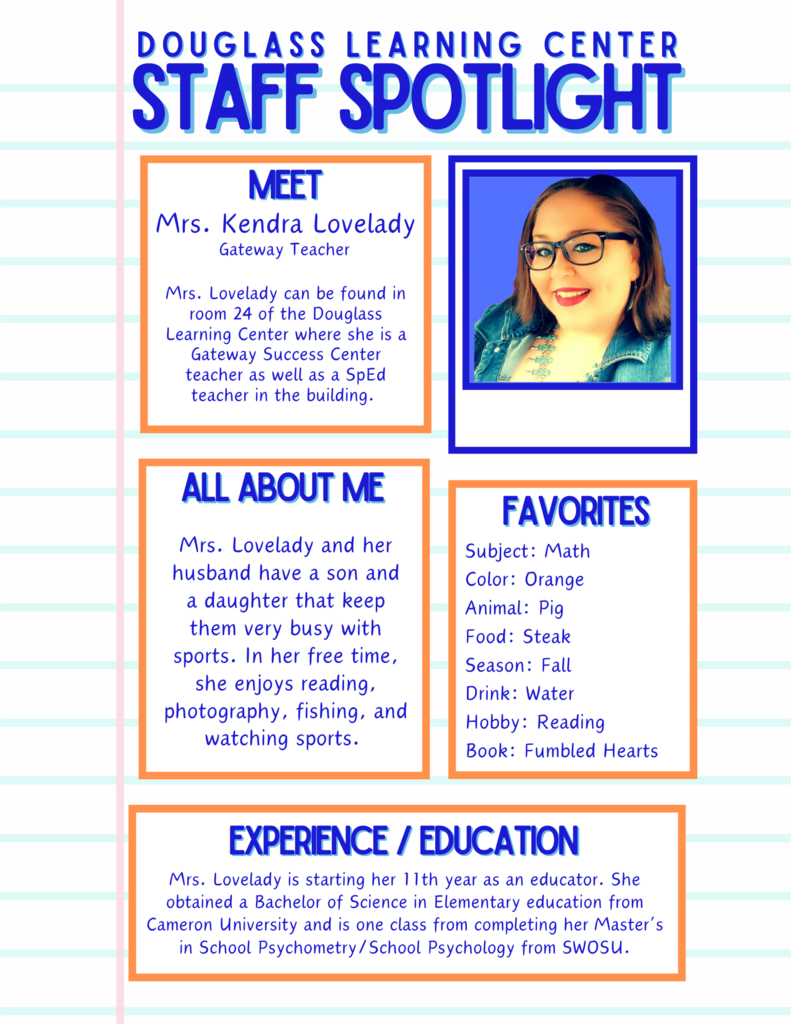 DOUGLASS LEARNING CENTER
STAFF SPOTLIGHT
MEET
Mrs. Kendra Lovelady
Gateway Teacher
Mrs. Lovelady can be found in
room 24 of the Douglass
Learning Center where she is a
Gateway Success Center
teacher as well as a SpEd
teacher in the building.
ALL ABOUT ME
Mrs. Lovelady and her
husband have a son and
a daughter that keep
them very busy with
sports. In her free time,
she enjoys reading,
photography, fishing, and
watching sports.
FAVORITES
Subject: Math
Color: Orange
Animal: Pig
Food: Steak
Season: Fall
Drink: Water
Hobby: Reading
Book: Fumbled Hearts
EXPERIENCE / EDUCATION
Mrs. Lovelady is starting her 11th year as an educator. She
obtained a Bachelor of Science in Elementary education from
Cameron University and is one class from completing her Master's
in School Psychometry/School Psychology from SWOSU.